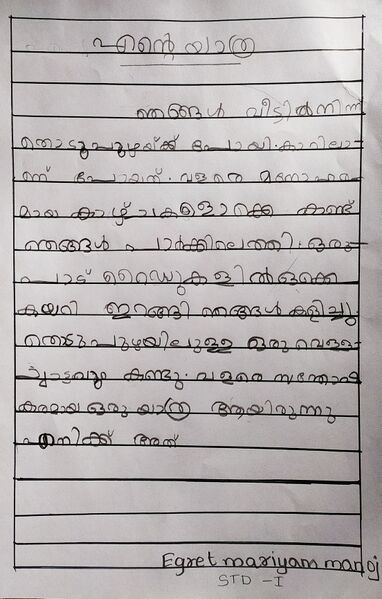 എന്റെ യാത്ര
ഞങ്ങൾ വീട്ടിൽനിന്ന്
തൊടുപുഴയ്ക്ക് പോയി. കാറിലാ-
ണ് പോയത്. വളരെ മനോഹര
മായ കാഴ്ചകളൊക്കെ കണ്ട്
ഞങ്ങൾ പാർക്കിലെത്തി. ഒരു
പാട് റൈഡുകളിൽഒക്കെ
കയറി ഇറങ്ങി ഞങ്ങൾ കളിച്ചു.
തൊടുപുഴയിലുള്ള ഒരു വെള്ള-
ച്ചാട്ടവും കണ്ടു. വളരെ സന്തോഷ
കരമായ ഒരു യാത്ര ആയിരുന്നു
എനിക്ക് അത്
Egret mariyam manoj
STD - I